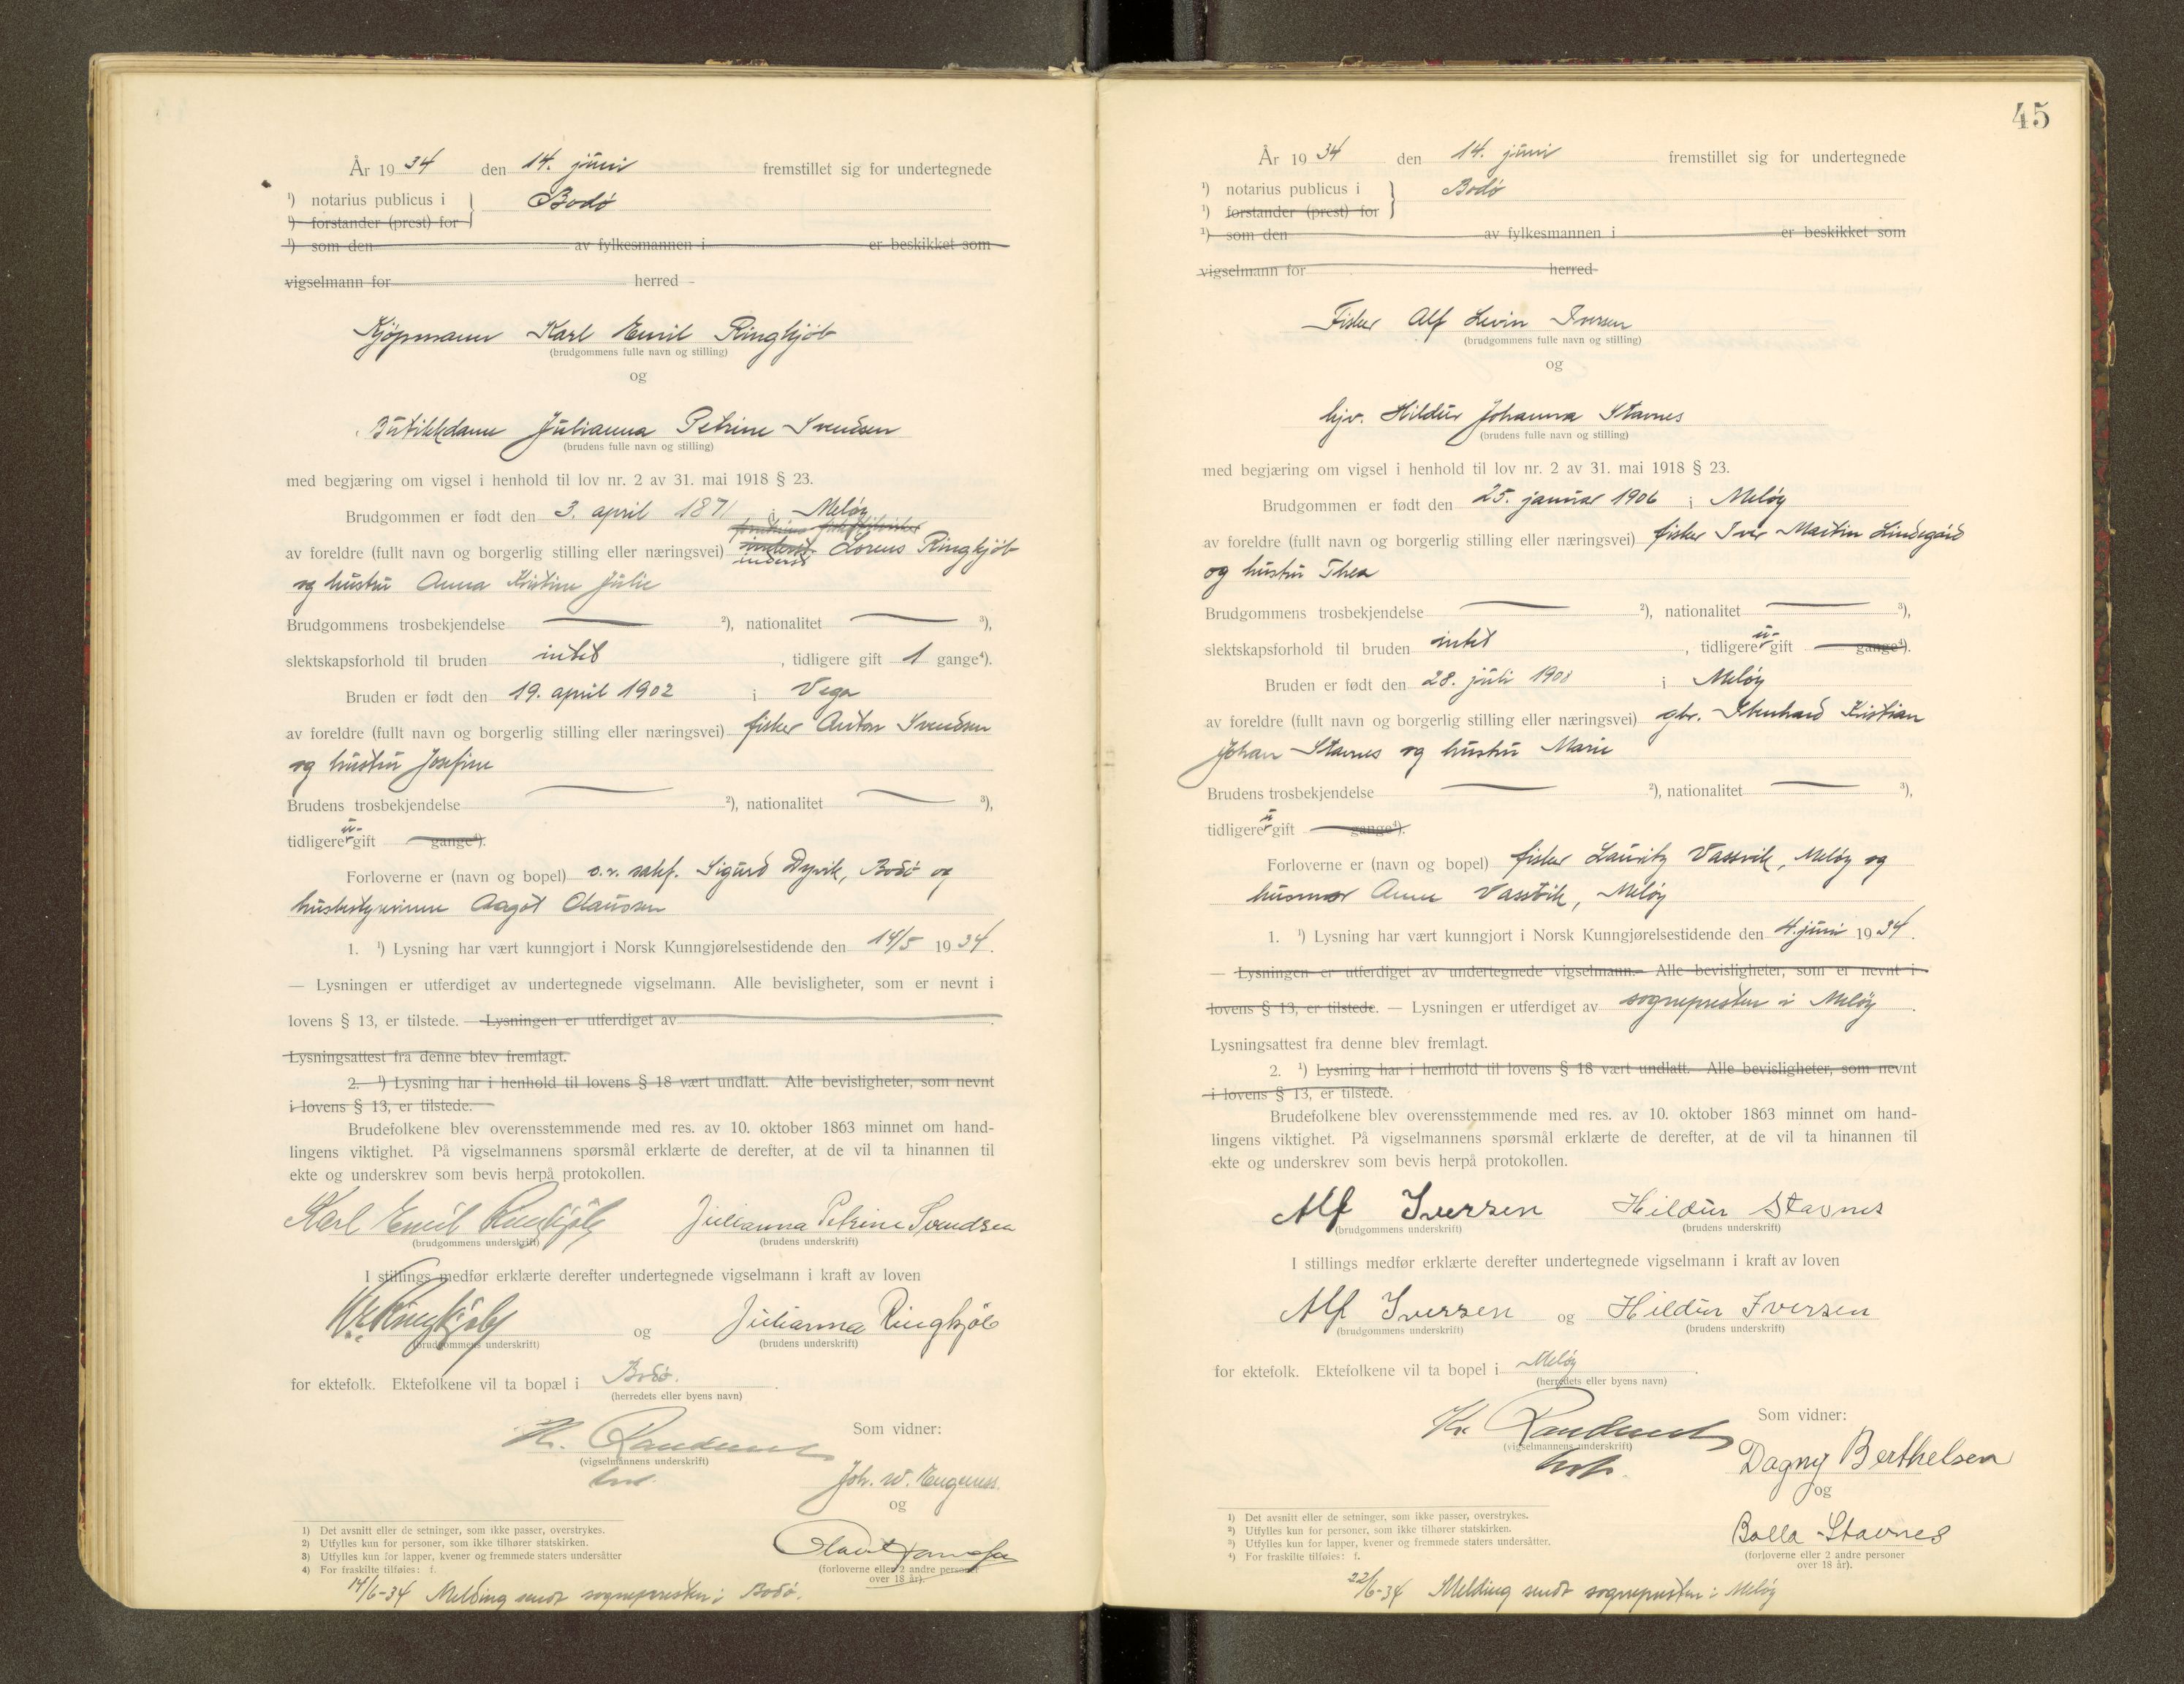 År 1934 den 14. juni fremstillet sig for undertegnede
¹) notarius publicus i Bodø
¹) forstander (prest) for
¹) som den av fylkesmannen i er beskikket som
vigselmann for herred
Kjøpmann Karl Emil Ringkjøb
(brudgommens fulle navn og stilling)
og
Butikkdame Julianna Petrine Svendsen
(brudens fulle navn og stilling)
med begjæring om vigsel i henhold til lov nr. 2 av 31. mai 1918 § 23.
Brudgommen er født den 3. april 1871 i Meløy
av foreldre (fullt navn og borgerlig stilling eller næringsvei) inderst Lorens Ringkjøb
og hustru Anna Kristine Julie
Brudgommens trosbekjendelse — ²), nationalitet — ³),
slektskapsforhold til bruden intet, tidligere gift 1 gange⁴).
Bruden er født den 19. april 1902 i Vega
av foreldre (fullt navn og borgerlig stilling eller næringsvei) fisker Anton Svendsen
og hustru Josefine
Brudens trosbekjendelse — ²), nationalitet — ³),
tidligere u-gift gange⁴).
Forloverne er (navn og bopel) o.r. sakf. Sigurd Dyrik, Bodø og
husbestyrerinne Aagot Claussen
1. ¹) Lysning har vært kunngjort i Norsk Kunngjørelsestidende den 14/5 1934.
— Lysningen er utferdiget av undertegnede vigselmann. Alle bevisligheter, som er nevnt i
lovens § 13, er tilstede. — Lysningen er utferdiget av
Lysningsattest fra denne blev fremlagt.
2. ¹) Lysning har i henhold til lovens § 18 vært undlatt. Alle bevisligheter, som nevnt
i lovens § 13, er tilstede.
Brudefolkene blev overensstemmende med res. av 10. oktober 1863 minnet om hand-
lingens viktighet. På vigselmannens spørsmål erklærte de derefter, at de vil ta hinannen til
ekte og underskrev som bevis herpå protokollen.
Karl Emil Ringkjøb Julianna Petrine Svendsen
(brudgommens underskrift) (brudens underskrift)
I stillings medfør erklærte derefter undertegnede vigselmann i kraft av loven
K.E. Ringkjøb og Julianna Ringkjøb
(brudgommens underskrift) (brudens underskrift)
for ektefolk. Ektefolkene vil ta bopæl i Bodø.
(herredets eller byens navn)
Som vidner:
(vigselmannens underskrift)
Joh. W.
og
(forloverne eller 2 andre personer
over 18 år).
1) Det avsnitt eller de setninger, som ikke passer, overstrykes.
2) Utfylles kun for personer, som ikke tilhører statskirken.
3) Utfylles kun for lapper, kvener og fremmede staters undersåtter
4) For fraskilte tilføies: f.
14/6-34 Melding sendt sognepresten i Bodø.
45
År 1934 den 14. juni fremstillet sig for undertegnede
¹) notarius publicus i Bodø
¹) forstander (prest) for
¹) som den av fylkesmannen i er beskikket som
vigselmann for herred
Fisker Alf Levin Iversen
(brudgommens fulle navn og stilling)
og
hjv. Hildur Johanna Stavnes
(brudens fulle navn og stilling)
med begjæring om vigsel i henhold til lov nr. 2 av 31. mai 1918 § 23.
Brudgommen er født den 25. januar 1906 i Meløy
av foreldre (fullt navn og borgerlig stilling eller næringsvei) fisker Iver Martin Lindegård
og hustru Thea
Brudgommens trosbekjendelse — ²), nationalitet — ³),
slektskapsforhold til bruden intet, tidligere u-gift gange⁴).
Bruden er født den 28. juli 1908 i Meløy
av foreldre (fullt navn og borgerlig stilling eller næringsvei) gbr. Kristian
Johan Stavnes og hustru Marie
Brudens trosbekjendelse — ²), nationalitet — ³),
tidligere u-gift gange⁴).
Forloverne er (navn og bopel) fisker Lauritz Vassvik, Meløy og
husmor Anne Vassvik, Meløy
1. ¹) Lysning har vært kunngjort i Norsk Kunngjørelsestidende den 4. juni 1934.
— Lysningen er utferdiget av undertegnede vigselmann. Alle bevisligheter, som er nevnt i
lovens § 13, er tilstede. — Lysningen er utferdiget av sognepresten i Meløy.
Lysningsattest fra denne blev fremlagt.
2. ¹) Lysning har i henhold til lovens § 18 vært undlatt. Alle bevisligheter, som nevnt
i lovens § 13, er tilstede.
Brudefolkene blev overensstemmende med res. av 10. oktober 1863 minnet om hand-
lingens viktighet. På vigselmannens spørsmål erklærte de derefter, at de vil ta hinannen til
ekte og underskrev som bevis herpå protokollen.
Alf Iversen Hildur Stavnes
(brudgommens underskrift) (brudens underskrift)
I stillings medfør erklærte derefter undertegnede vigselmann i kraft av loven
Alf Iversen og Hildur Iversen
(brudgommens underskrift) (brudens underskrift)
for ektefolk. Ektefolkene vil ta bopel i Meløy.
(herredets eller byens navn)
Som vidner:
(vigselmannens underskrift)
Dagny Berthelsen
og
Balla Stavnes
(forloverne eller 2 andre personer
over 18 år).
¹) Det avsnitt eller de setninger, som ikke passer, overstrykes.
²) Utfylles kun for personer, som ikke tilhører statskirken.
³) Utfylles kun for lapper, kvener og fremmede staters undersåtter.
⁴) For fraskilte tilføies: f.
22/6-34 Melding sendt sognepresten i Meløy